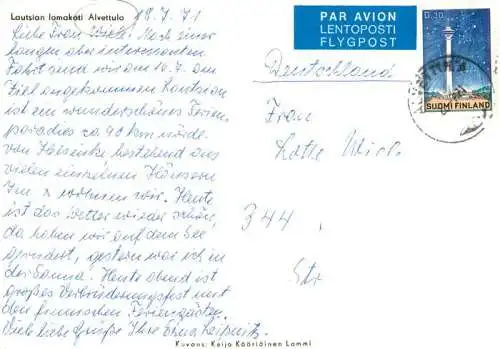 Lautsian lomakoti Alvettula
18.7.71
Liebe Frau Wirk. Nach einer
langen aber interessanten
Fahrt sind wir am 10.7. am
Ziel angekommen. Lautsian
ist ein wunderschönes Ferien
paradies ca 90 km nördl.
von Helsinki bestehend aus
vielen einzelnen Häusern
Im x wohnen wir. Heute
ist das Wetter wieder schön,
da haben wir auf dem See
gerudert, gestern war ich in
der Sauna. Heute abend ist
großes Verbrüderungsfest mit
den finnischen Feriengästen.
Viele liebe Grüße Ihre
PAR AVION
LENTOPOSTI
FLYGPOST
0,30
SUOMI FINLAND
Deutschland
Frau
Lotte Wirk
344
Str
Kuvans: Keijo Kääriäinen Lammi